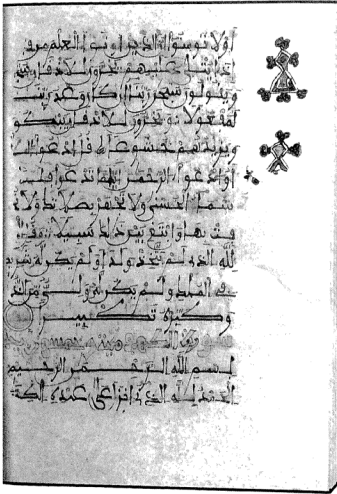 أو لا تومنوا إن الذين أوتوا العلم من
إذا يتلى عليهم يخرون للاذقان
ويقولون سبحن ربنا إن كان وعد ربنا
لمفعولا ويخرون للاذقان يبكو
ويزيدهم خشوعا قل ادعوا الله
أو ادعوا الرحمن أيا ما تدعوا فله
سما الحسنى ولا تجهر بصلاتك ولا تخا
فت بها وابتغ بين ذلك سبيلا وقل
لله الذي لم يتخذ ولدا ولم يكن له شريك
في الملك ولم يكن له ولي من الذ
وكبره تكبيرا
سورة الكهف
بسم الله الرحمن الرحيم
الحمد لله الذي أنزل على عبده الكت